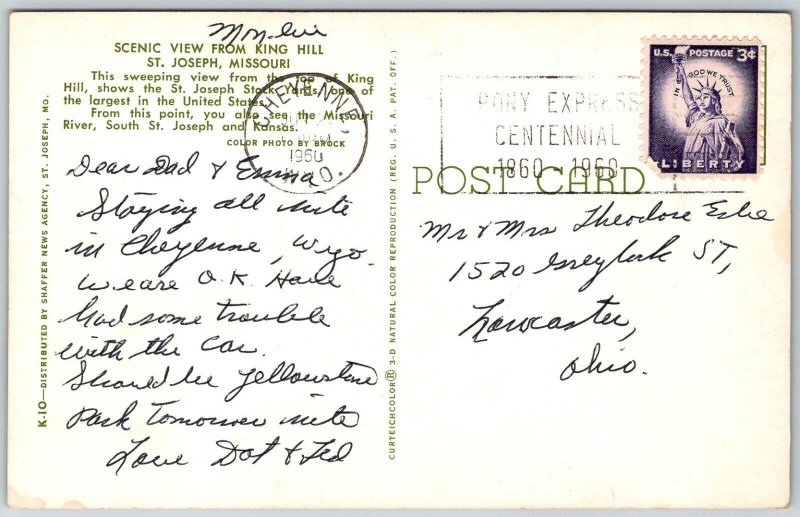 Mon. eve
SCENIC VIEW FROM KING HILL
ST. JOSEPH, MISSOURI
This sweeping view from the top of King
Hill, shows the St. Joseph Stock Yards, one of
the largest in the United States.
From this point, you also see the Missouri
River, South St. Joseph and Kansas.
COLOR PHOTO BY BROCK
Dear Dad & Emma
Staying all nite
in Cheyenne, Wyo.
We are O.K. Have
had some trouble
with the car.
Should be Yellowstone
Park Tomorrow nite
Love Dot & Ted
K-10—DISTRIBUTED BY SHAFFER NEWS AGENCY, ST. JOSEPH, MO.
CURTEICHCOLOR® 3-D NATURAL COLOR REPRODUCTION (REG. U.S.A. PAT. OFF.)
CHEYENNE,
1960
WYO.
PONY EXPRESS
CENTENNIAL
1860 1960
U.S. POSTAGE 3¢
IN GOD WE TRUST
LIBERTY
POST CARD
Mr & Mrs Theodore
1520 Greylock ST,
Lancaster,
Ohio.